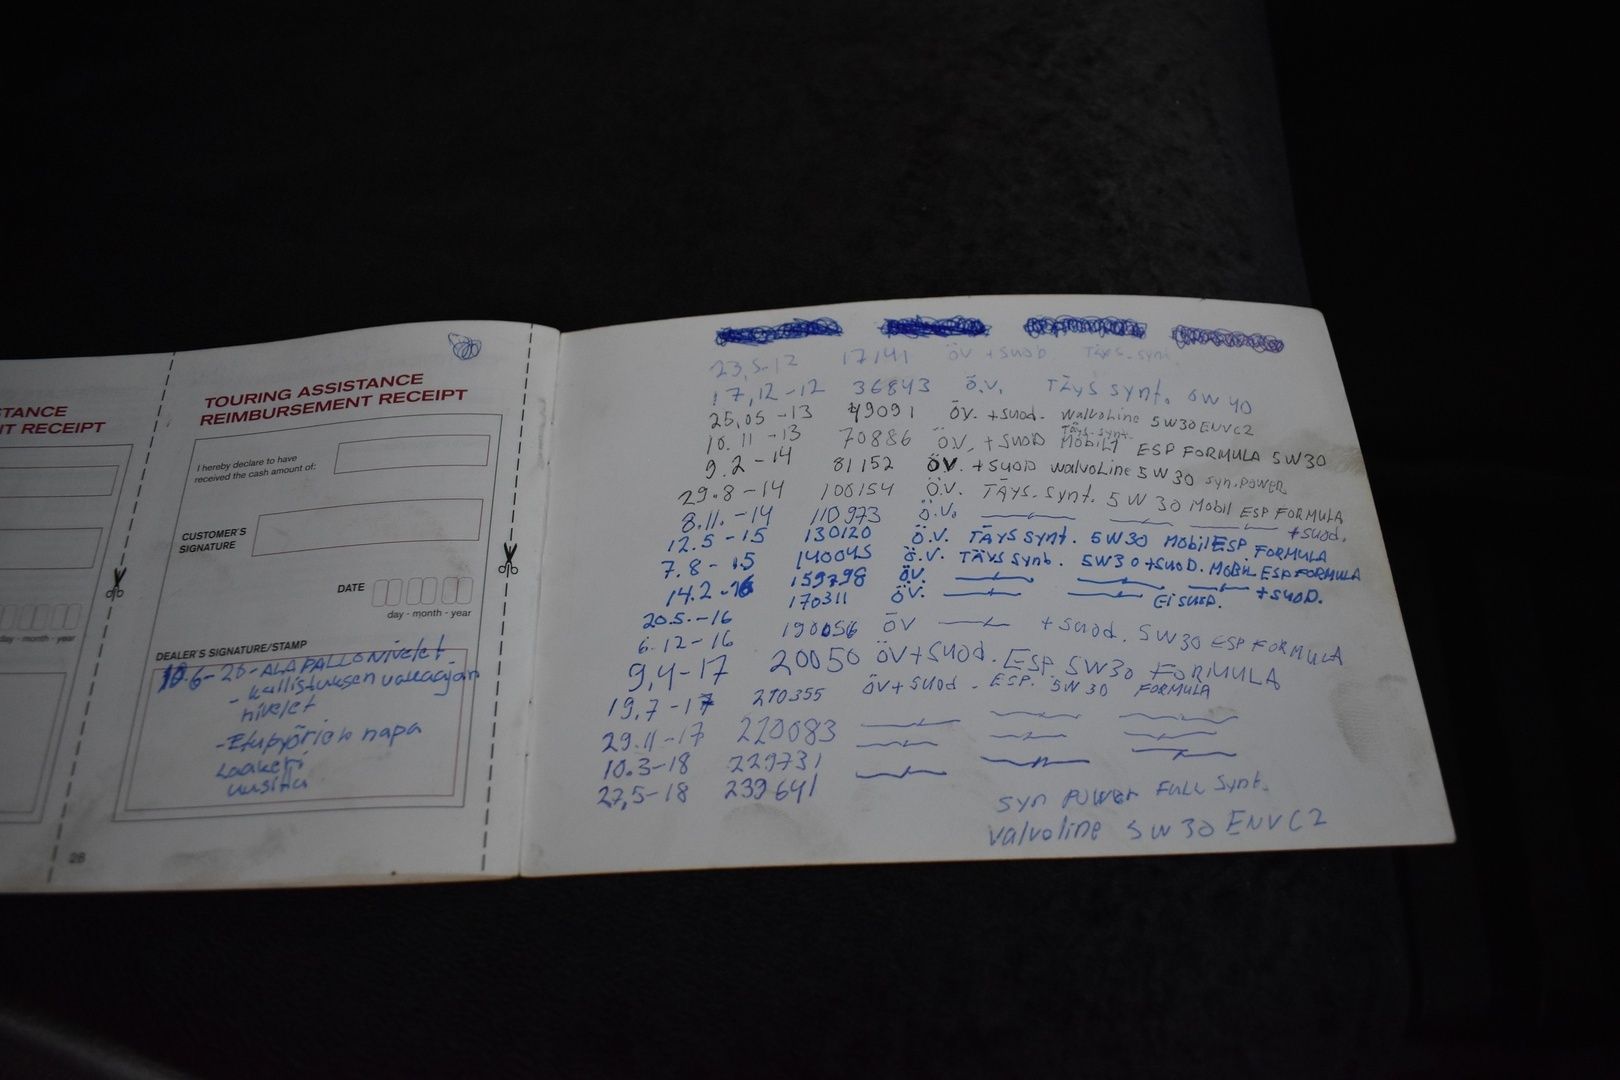 STANCE
NT RECEIPT
day - month - year
TOURING ASSISTANCE
REIMBURSEMENT RECEIPT
I hereby declare to have
received the cash amount of:
CUSTOMER'S
SIGNATURE
DATE
day - month - year
DEALER'S SIGNATURE/STAMP
ALAPALLONIVELET
- kallistuksen vakaajan
nivelet
- Etupyörien napa
Laakeri
uusittu
28
23,5-12 17141 ÖV + SUOD. TÄYS-synt
17,12-12 36843 Ö.V. TÄYS synt. 5W40
25,05-13 49091 ÖV. + suod. WalvoLine 5W30 ENVC2
10.11-13 70886 ÖV. + SUOD Täys-synt. MObiL1 ESP FORMULA 5W30
9.2-14 81152 ÖV. + SUOD WalvoLine 5W30 syn.POWER
29.8-14 100154 Ö.V. TÄYS. synt. 5W30 Mobil ESP FORMULA
8.11.-14 110973 Ö.V. + suod.
12.5-15 130120 Ö.V. TÄYS synt. 5W30 Mobil ESP. FORMULA
7.8-15 140045 Ö.V. TÄYS synt. 5W30 + SUOD. MOBIL ESP FORMULA
14.2-16 159798 ÖV. + SUOD.
20.5.-16 170311 ÖV. Ei suod.
6.12-16 190056 ÖV + suod. 5W30 ESP FORMULA
9,4-17 20050 ÖV+SUOd. ESP 5W30 FORMULA
19,7-17 210355 ÖV+ suod. ESP. 5W30 FORMULA
29.11-17 220083
10.3-18 229731
27,5-18 239641
syn POWER FULL synt.
Valvoline 5W30 ENVC2